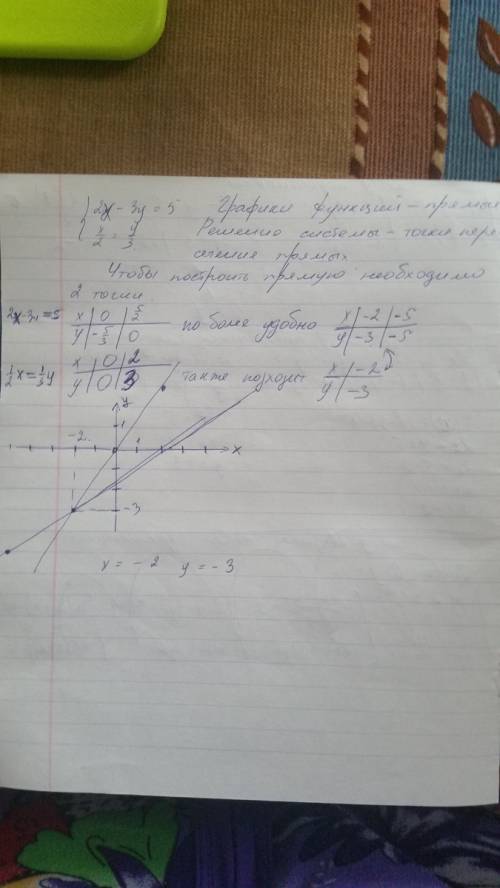 { 2x − 3y = 5 Графики функций – прямые
x/2 = y/3 Решение системы – точки пере
сечение прямых
Чтобы построить прямую необходимо
2 точки
2x-3y=5 x | 0 | 5/2 но более удобно x | -2 | -5
y | -5/3 | 0 y | -3 | -5
1/2 x = 1/3 y x | 0 | 2 также подходит x | -2
y | 0 | 3 y | -3
y
1
-2
1
x
-3
x = -2 y = -3